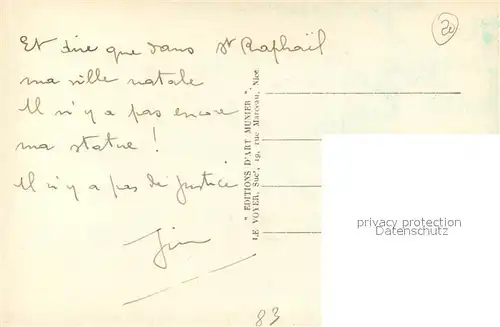 Et dire que dans St Raphaël
ma ville natale
Il n'y a pas encore
ma statue !
Il n'y a pas de justice
"ÉDITIONS D'ART MUNIER".
LE VOYER, Sucr, 19, rue Marceau, Nice
83
privacy protection
Datenschutz